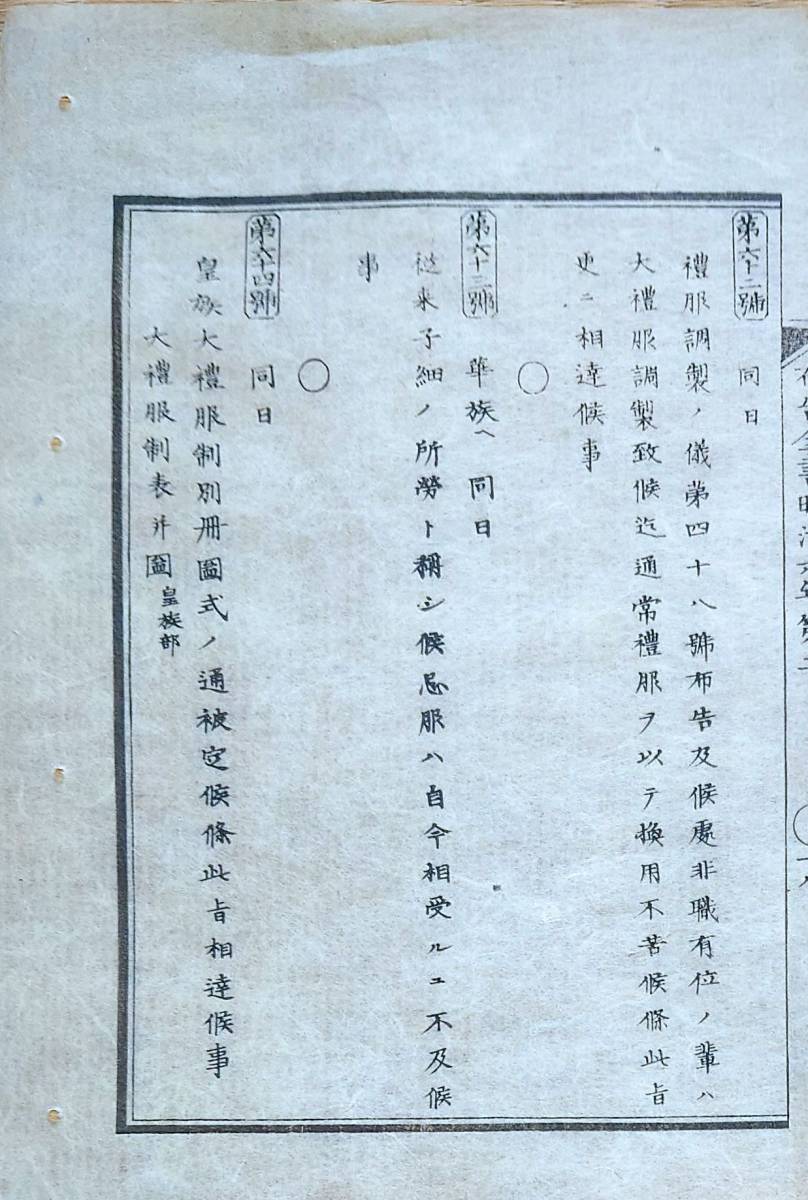 第六十二號 同日
禮服調製ノ儀第四十八號布告及候處非職有位ノ輩ハ
大禮服調製致候迄通常禮服ヲ以テ換用不苦候條此旨
更ニ相達候事
○
第六十三號 華族ヘ 同日
從来子細ノ所勞ト稱シ候忌服ハ自今相受ルヿ不及候
事
○
第六十四號 同日
皇族大禮服制別冊圖式ノ通被定候條此旨相達候事
大禮服制表并圖 皇族部